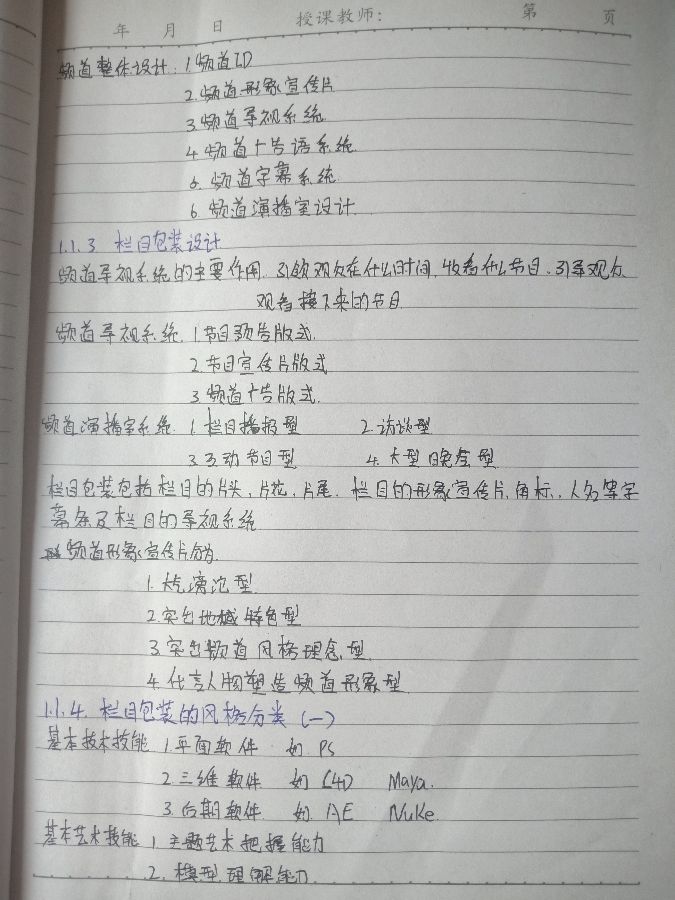 年 月 日 授课教师: 第 页
频道整体设计: 1.频道ID
2.频道形象宣传片
3.频道导视系统
4.频道广告语系统
5.频道字幕系统
6.频道演播室设计
1.1.3 栏目包装设计
频道导视系统的主要作用.引领观众在什么时间,收看什么节目.引导观众
观看接下来的节目
频道导视系统.1.节目预告版式.
2.节目宣传片版式
3.频道广告版式.
频道演播室系统.1.栏目播报型 2.访谈型
3.互动节目型 4.大型晚会型
栏目包装包括栏目的片头,片花,片尾.栏目的形象宣传片,角标.人名等字
幕条及栏目的导视系统
频道形象宣传片分为
1.大气滂沱型
2.突出地域特色型
3.突出频道风格理念型
4.代言人物塑造频道形象型
1.1.4.栏目包装的风格分类(一)
基本技术技能 1.平面软件 如 PS
2.三维软件 如 C4D Maya.
3.后期软件 如.AE Nuke.
基本艺术技能 1.主题艺术把握能力
2.模型理解能力